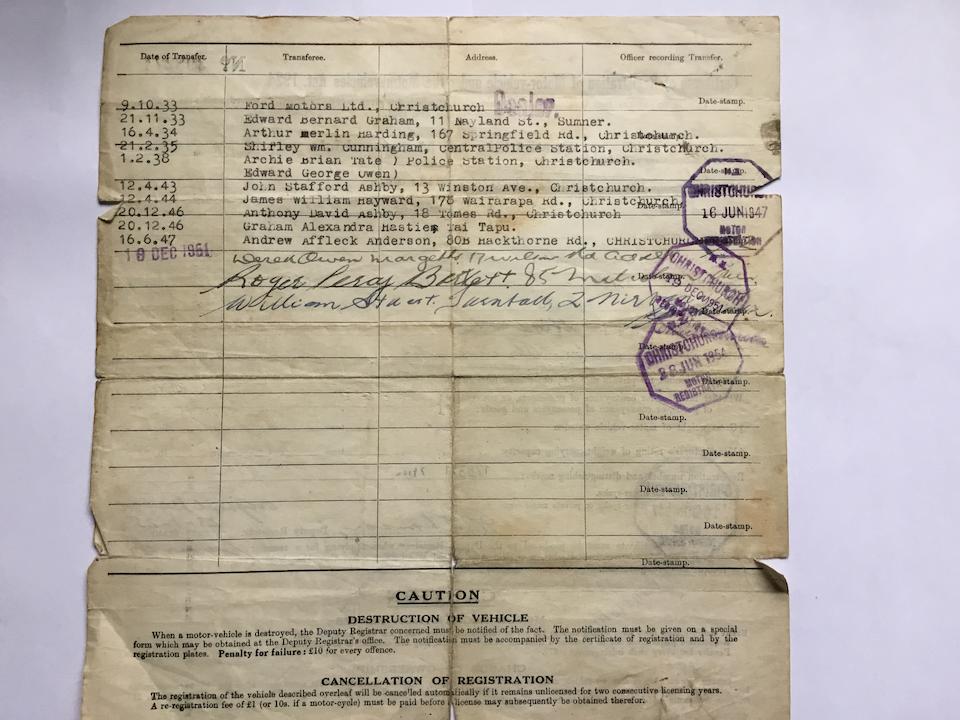 Date of Transfer. Transferee. Address. Officer recording Transfer.
Dealer. Date-stamp.
9.10.33 Ford Motors Ltd., Christchurch
21.11.33 Edward Bernard Graham, 11 Nayland St., Sumner.
16.4.34 Arthur merlin Harding, 167 Springfield Rd., Christchurch.
Date-stamp.
21.2.35 Shirley Wm. Cunningham, CentralPolice Station, Christchurch.
1.2.38 Archie Brian Tate ) Police Station, Christchurch.
Edward George Owen)
Date-stamp.
12.4.43 John Stafford Ashby, 13 Winston Ave., Christchurch.
12.4.44 James William Hayward, 178 Wairarapa Rd., Christchurch,
Date-stamp.
20.12.46 Anthony David Ashby, 18 Tomes Rd., Christchurch
20.12.46 Graham Alexandra Hastie, Tai Tapu.
16.6.47 Andrew Affleck Anderson, 80B Hackthorne Rd., CHRISTCHURCH
N.Z.
CHRISTCHURCH
16 JUN 1947
MOTOR
REGISTRATION
18 DEC 1951 Derek Owen Rd
CHRISTCHURCH
DEC 1951
Date-stamp.
Roger Percy 85
William Stuart 2
Date-stamp.
Date-stamp.
CHRISTCHURCH
28 JUN 1954
MOTOR
REGISTRAR
Date-stamp.
Date-stamp.
Date-stamp.
Date-stamp.
Date-stamp.
Date-stamp.
CAUTION
DESTRUCTION OF VEHICLE
When a motor-vehicle is destroyed, the Deputy Registrar concerned must be notified of the fact. The notification must be given on a special
form which may be obtained at the Deputy Registrar's office. The notification must be accompanied by the certificate of registration and by the
registration plates. Penalty for failure: £10 for every offence.
CANCELLATION OF REGISTRATION
The registration of the vehicle described overleaf will be cancelled automatically if it remains unlicensed for two consecutive licensing years.
A re-registration fee of £1 (or 10s. if a motor-cycle) must be paid before a license may subsequently be obtained therefor.